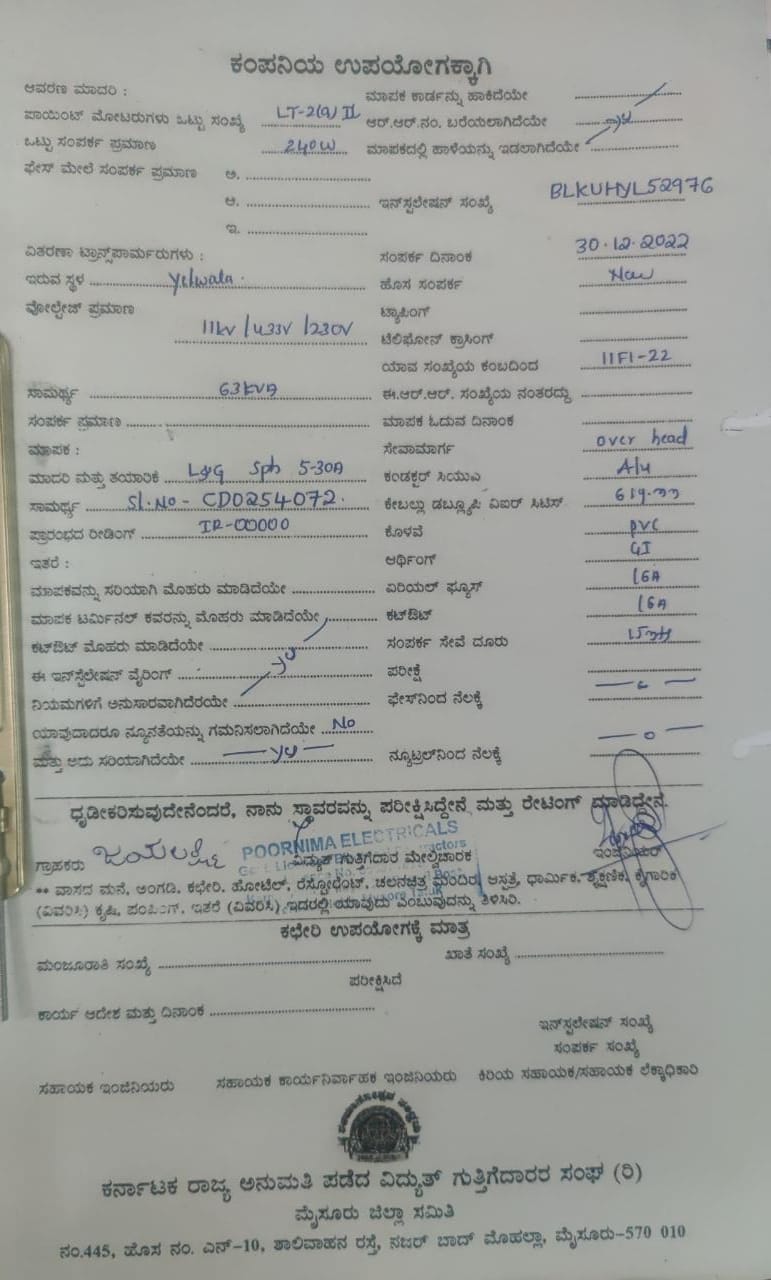 ಕಂಪನಿಯ ಉಪಯೋಗಕ್ಕಾಗಿ
ಆವರಣ ಮಾದರಿ : ಮಾಪಕ ಕಾರ್ಡನ್ನು ಹಾಕಿದೆಯೇ
ಪಾಯಿಂಟ್ ಮೋಟರುಗಳು ಒಟ್ಟು ಸಂಖ್ಯೆ LT-2(a) II ಆರ್.ಆರ್.ನಂ. ಬರೆಯಲಾಗಿದೆಯೇ
ಒಟ್ಟು ಸಂಪರ್ಕ ಪ್ರಮಾಣ 240W ಮಾಪಕದಲ್ಲಿ ಹಾಳೆಯನ್ನು ಇಡಲಾಗಿದೆಯೇ
ಫೇಸ್ ಮೇಲೆ ಸಂಪರ್ಕ ಪ್ರಮಾಣ ಅ.
ಆ. ಇನ್‌ಸ್ಟಲೇಷನ್ ಸಂಖ್ಯೆ BLKUHYL52976
ಇ.
ವಿತರಣಾ ಟ್ರಾನ್ಸ್‌ಪಾರ್ಮರುಗಳು : ಸಂಪರ್ಕ ದಿನಾಂಕ 30.12.2022
ಇರುವ ಸ್ಥಳ Yelwala. ಹೊಸ ಸಂಪರ್ಕ New
ವೋಲ್ಟೇಜ್ ಪ್ರಮಾಣ 11kv/433V/230V ಟ್ಯಾಪಿಂಗ್
ಟೆಲಿಫೋನ್ ಕ್ರಾಸಿಂಗ್
ಯಾವ ಸಂಖ್ಯೆಯ ಕಂಬದಿಂದ 11F1-22
ಸಾಮರ್ಥ್ಯ 63kVA ಈ.ಆರ್.ಆರ್. ಸಂಖ್ಯೆಯ ನಂತರದ್ದು
ಸಂಪರ್ಕ ಪ್ರಮಾಣ ಮಾಪಕ ಓದುವ ದಿನಾಂಕ
ಮಾಪಕ : ಸೇವಾಮಾರ್ಗ over head
ಮಾದರಿ ಮತ್ತು ತಯಾರಿಕೆ L&G Sph 5-30A ಕಂಡಕ್ಟರ್ ಸಿಯುಎ Alu
ಸಾಮರ್ಥ್ಯ Sl.No - CD0254072. ಕೇಬಲ್ಲು ಡಬ್ಲ್ಯೂಪಿ ವಿಐರ್ ಸಿಟಿಸ್
ಪ್ರಾರಂಭದ ರೀಡಿಂಗ್ IR-00000 ಕೊಳವೆ PVC
ಇತರೆ : ಆರ್ಥಿಂಗ್ GI
ಮಾಪಕವನ್ನು ಸರಿಯಾಗಿ ಮೊಹರು ಮಾಡಿದೆಯೇ ಏರಿಯಲ್ ಫ್ಯೂಸ್ 16A
ಮಾಪಕ ಟರ್ಮಿನಲ್ ಕವರನ್ನು ಮೊಹರು ಮಾಡಿದೆಯೇ ಕಟ್‌ಔಟ್ 16A
ಕಟ್‌ಔಟ್ ಮೊಹರು ಮಾಡಿದೆಯೇ ಸಂಪರ್ಕ ಸೇವೆ ದೂರು
ಈ ಇನ್‌ಸ್ಟಲೇಷನ್ ವೈರಿಂಗ್ ಪರೀಕ್ಷೆ
ನಿಯಮಗಳಿಗೆ ಅನುಸಾರವಾಗಿದೆರಯೇ ಫೇಸ್‌ನಿಂದ ನೆಲಕ್ಕೆ
ಯಾವುದಾದರೂ ನ್ಯೂನತೆಯನ್ನು ಗಮನಿಸಲಾಗಿದೆಯೇ No
ಮತ್ತು ಅದು ಸರಿಯಾಗಿದೆಯೇ ನ್ಯೂಟ್ರಲ್‌ನಿಂದ ನೆಲಕ್ಕೆ — 0 —
ಧೃಡೀಕರಿಸುವುದೇನೆಂದರೆ, ನಾನು ಸ್ಥಾವರವನ್ನು ಪರೀಕ್ಷಿಸಿದ್ದೇನೆ ಮತ್ತು ರೇಟಿಂಗ್ ಮಾಡಿದ್ದೇನೆ.
POORNIMA ELECTRICALS
ಗ್ರಾಹಕರು ಜಯಲಕ್ಷ್ಮಿ ವಿದ್ಯುತ್ ಗುತ್ತಿಗೆದಾರ ಮೇಲ್ವಿಚಾರಕ ಇಂಜಿನಿಯರ್
** ವಾಸದ ಮನೆ, ಅಂಗಡಿ, ಕಛೇರಿ, ಹೋಟೆಲ್, ರೆಸ್ಟೋರೆಂಟ್, ಚಲನಚಿತ್ರ ಮಂದಿರ, ಆಸ್ಪತ್ರೆ, ಧಾರ್ಮಿಕ, ಶೈಕ್ಷಣಿಕ, ಕೈಗಾರಿಕ
(ವಿವರಿಸಿ) ಕೃಷಿ, ಪಂಪಿಂಗ್, ಇತರೆ (ವಿವರಿಸಿ) ಇದರಲ್ಲಿ ಯಾವುದು ಎಂಬುವುದನ್ನು ತಿಳಿಸಿರಿ.
ಕಛೇರಿ ಉಪಯೋಗಕ್ಕೆ ಮಾತ್ರ
ಮಂಜೂರಾತಿ ಸಂಖ್ಯೆ ಖಾತೆ ಸಂಖ್ಯೆ
ಪರೀಕ್ಷಿಸಿದೆ
ಕಾರ್ಯ ಆದೇಶ ಮತ್ತು ದಿನಾಂಕ
ಇನ್‌ಸ್ಟಲೇಷನ್ ಸಂಖ್ಯೆ
ಸಂಪರ್ಕ ಸಂಖ್ಯೆ
ಸಹಾಯಕ ಇಂಜಿನಿಯರು ಸಹಾಯಕ ಕಾರ್ಯನಿರ್ವಾಹಕ ಇಂಜಿನಿಯರು ಕಿರಿಯ ಸಹಾಯಕ/ಸಹಾಯಕ ಲೆಕ್ಕಾಧಿಕಾರಿ
ಕರ್ನಾಟಕ ರಾಜ್ಯ ಅನುಮತಿ ಪಡೆದ ವಿದ್ಯುತ್ ಗುತ್ತಿಗೆದಾರರ ಸಂಘ (ರಿ)
ಮೈಸೂರು ಜಿಲ್ಲಾ ಸಮಿತಿ
ನಂ.445, ಹೊಸ ನಂ. ಎನ್-10, ಶಾಲಿವಾಹನ ರಸ್ತೆ, ನಜರ್ ಬಾದ್ ಮೊಹಲ್ಲಾ, ಮೈಸೂರು-570 010